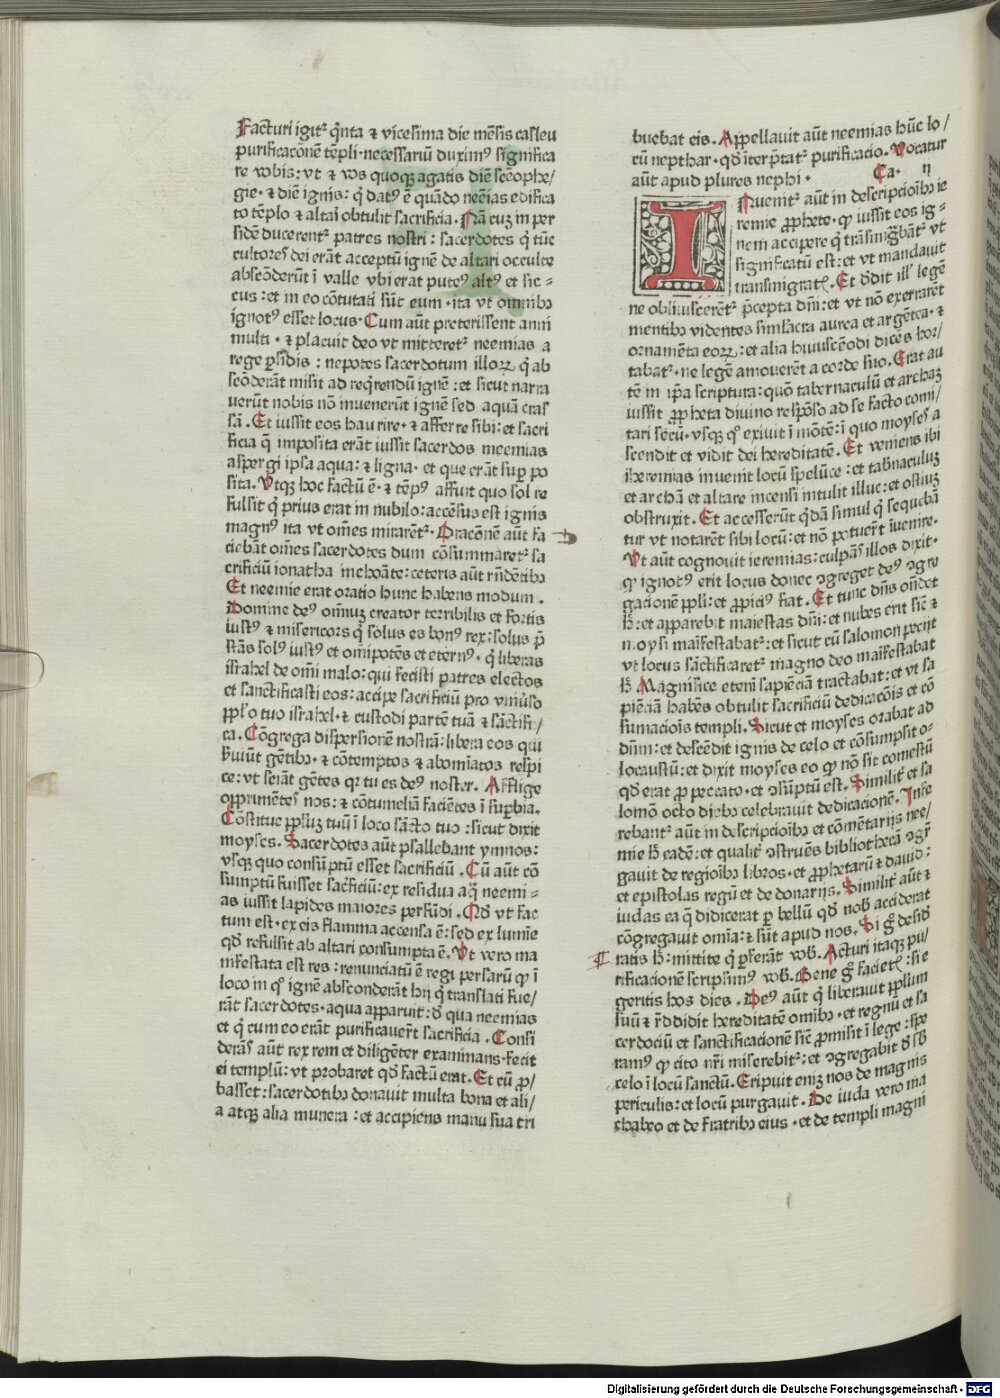 Facturi igit᷑ q̃nta ⁊ vicesima die mẽsis casleu
purificacõnẽ tẽpli·necessariũ duximꝰ significa
re vobis:vt ⁊ vos quoqꝫ agatis diẽ scẽophe/
gie·⁊ diẽ ignis:q̃ datꝰ ẽ quãdo neẽias edifica
to tẽplo ⁊ altai obtulit sacrificia. Nã cuꝫ in per
sidẽ ducerent᷑ patres nostri: sacerdotes q̃ tũc
cultores dei erãt acceptũ ignẽ de altari occulte
abscõderũt ĩ valle vbi erat puteꝰ altꝰ et sic-
cus:et in eo cõtutati sũt eum·ita vt omnibꝫ
ignotꝰ esset locus·Cum aũt preterissent anni
multi·⁊ placuit deo vt mitteret᷑ neemias a
rege ꝑsidis: nepotes sacerdotum illoꝝ q̃ ab
scõderãt misit ad reqͥrendũ ignẽ:et sicut narra
verũt nobis nõ invenerũt ignẽ sed aquã cras
sã. Et iussit eos haurire·⁊ afferre sibi:et sacri
ficia q̃ imposita erãt iussit sacerdos neemias
aspergi ipsa aqua:⁊ ligna·et que erãt suꝑ po
sita. Vtqꝫ hoc factũ ẽ·⁊ tẽpꝰ affuit quo sol re
fulsit q̃ prius erat in nubilo:accẽsus est ignis
magnꝰ ita vt om̃es mirarẽt᷑·Oracõnẽ aũt fa
ciebãt om̃es sacerdotes dum cõsummaret᷑ sa
crificiũ ionatha inchoãte:ceteris aũt rñdẽtibꝫ
Et neemie erat oratio hunc habens modum.
Domine deꝰ om̃iuꝫ creator terribilis et fortis
iustꝰ ⁊ misericors q̃ solus es bonꝰ rex:solus p̃
stãs solꝰ iustꝰ et om̃ipotẽs et eternꝰ·q̃ liberas
israhel de om̃i malo:qui fecisti patres electos
et sanctificasti eos:accipe sacrificiũ pro vniũso
ppl̃o tuo israhel·⁊ custodi partẽ tuã ⁊ sãctifi/
ca. Cõgrega dispersionẽ nostrã:libera eos qui
ẜuiũt gẽtibꝫ·⁊ cõtemptos ⁊ abomiatos respi
ce:vt sciãt gẽtes qꝛ tu es deꝰ noster. Afflige
opprimẽtes nos:⁊ cõtumeliã faciẽtes ĩ suꝑbia.
Cõstitue ppl̃uꝫ tuũ ĩ loco sãcto tuo:sicut dixit
moyses. Sacerdotes aũt psallebant ymnos:
vsqꝫ quo consũptũ esset sacrificiũ. Cũ aũt cõ
sumptũ fuisset sac̃ficiũ:ex residua aq̃ neemi-
as iussit lapides maiores perfũdi. Qd̃ vt fac
tum est·ex eis flamma accensa ẽ:sed ex lumĩe
qd̃ refulsit ab altari consumpta ẽ. Vt vero ma
nifestata est res:renunciatũ ẽ regi persarũ qꝫ ĩ
loco in qͦ ignẽ absconderãt hij q̃ translati fue/
rãt sacerdotes·aqua apparuit:d̃ qua neemias
et q̃ cum eo erãt purificauer̃t sacrificia. Consi
derãs aũt rex rem et diligẽter examinans·fecit
ei templũ:vt probaret qd̃ factũ erat. Et cũ ꝓ/
basset:sacerdotibꝫ donauit multa bona et ali/
a atqꝫ alia munera:et accipiens manu sua tri
buebat eis. Appellauit aũt neemias hũc lo/
cũ nepthar·qd̃ ĩterp̃tat᷑ purificacio. Vocatur
aũt apud plures nephi.
Ca. ij
INuenit᷑ aũt in descripcioĩbꝫ ie
remie ꝓphete·qꝫ iussit eos ig-
nem accipere q̃ trãsmigͣbãt᷑ vt
significatũ est:et vt mandauit
transmigratꝭ. Et d̃dit ill᷑ legẽ
ne obliuiscerẽt᷑ p̃cepta dñi:et vt nõ exerrarẽt
mentibꝫ videntes simlacra aurea et argẽtea·⁊
ornamẽta eoꝝ:et alia huiuscẽodi dicẽs hor/
tabat᷑·ne legẽ amouerẽt a corde suo. Erat au
tẽ in ip̃a scriptura:quõ tabernaculũ et archaꝫ
iussit ꝓpheta diuino respõso ad se facto comi/
tari secũ·vsqꝫ qͦ exiuit ĩ mõtẽ:ĩ quo moyses a
scendit et vidit dei hereditatẽ. Et veniens ibi
iheremias inuenit locũ spelũce:et tab̃naculuꝫ
et archã et altare incensi intulit illuc:et ostiuꝫ
obstruxit. Et accesserũt qͥdã simul q̃ sequebã
tur vt notarẽt sibi locũ:et nõ potuer̃t ĩuenire.
Vt aũt cognouit ieremias:culpãs illos dixit.
qꝫ ignotꝰ erit locus donec ꝯgreget deꝰ ꝯgre
gacionẽ ppl̃i:et ꝓpiciꝰ fiat. Et tunc dñs oñdet
h̃:et apparebit maiestas dñi:et nubes erit sic̃ ⁊
moysi maĩfestabat᷑:et sicut cũ salomon peciĩt
vt locus sãctificaret᷑ magno deo maĩfestabat
h̃. Magnifice eteni sapiẽciã tractabat:et vt sa
piẽciã habẽs obtulit sacrificiũ dedicacõis et cõ
sumacioĩs templi. Sicut et moyses orabat ad
dñm:et descẽdit ignis de celo et cõsumpsit o-
locaustũ:et dixit moyses eo qꝫ nõ sit comestũ
qd̃ erat ꝓ peccato·et ꝯsũptũ est. Similit᷑ et sa
lomõ octo diebꝫ celebrauit dedicacionẽ. Infe
rebant᷑ aũt in descripcioĩbꝫ et cõmẽtarijs nee/
mie h̃ eadẽ:et qualit᷑ ꝯstruẽs bibliothecã ꝯgͬ
gauit de regioĩbꝫ libros·et ꝓphetarũ ⁊ dauid:
et epistolas regũ et de donarijs. Similit᷑ aũt ⁊
iudas ea q̃ didicerat ꝑ bellũ qd̃ nob̃ acciderat
cõgregauit omĩa:⁊ sũt apud nos. Si gͦ desid̃
ratis h̃:mittite q̃ ꝑferãt vob̃. Acturi itaqꝫ pu/
rificacionẽ scripsimꝰ vob̃. Bene gͦ facietꝭ:si e
geritis hos dies. Deꝰ aũt q̃ liberauit ppl̃um
suũ ⁊ r̃ddidit hereditatẽ omĩbꝫ·et regnũ et sa
cerdociũ et sanctificacionẽ sic̃ ꝓmisit ĩ lege:spe
ramꝰ qꝫ cito nr̃i miserebit᷑:et ꝯgregabit d̃ sb̃
celo ĩ locũ sanctũ. Eripuit eniꝫ nos de magnis
periculis:et locũ purgauit. De iuda vero ma
chabeo et de fratribꝫ eius·et de templi magni
Digitalisierung gefördert durch die Deutsche Forschungsgemeinschaft - DFG